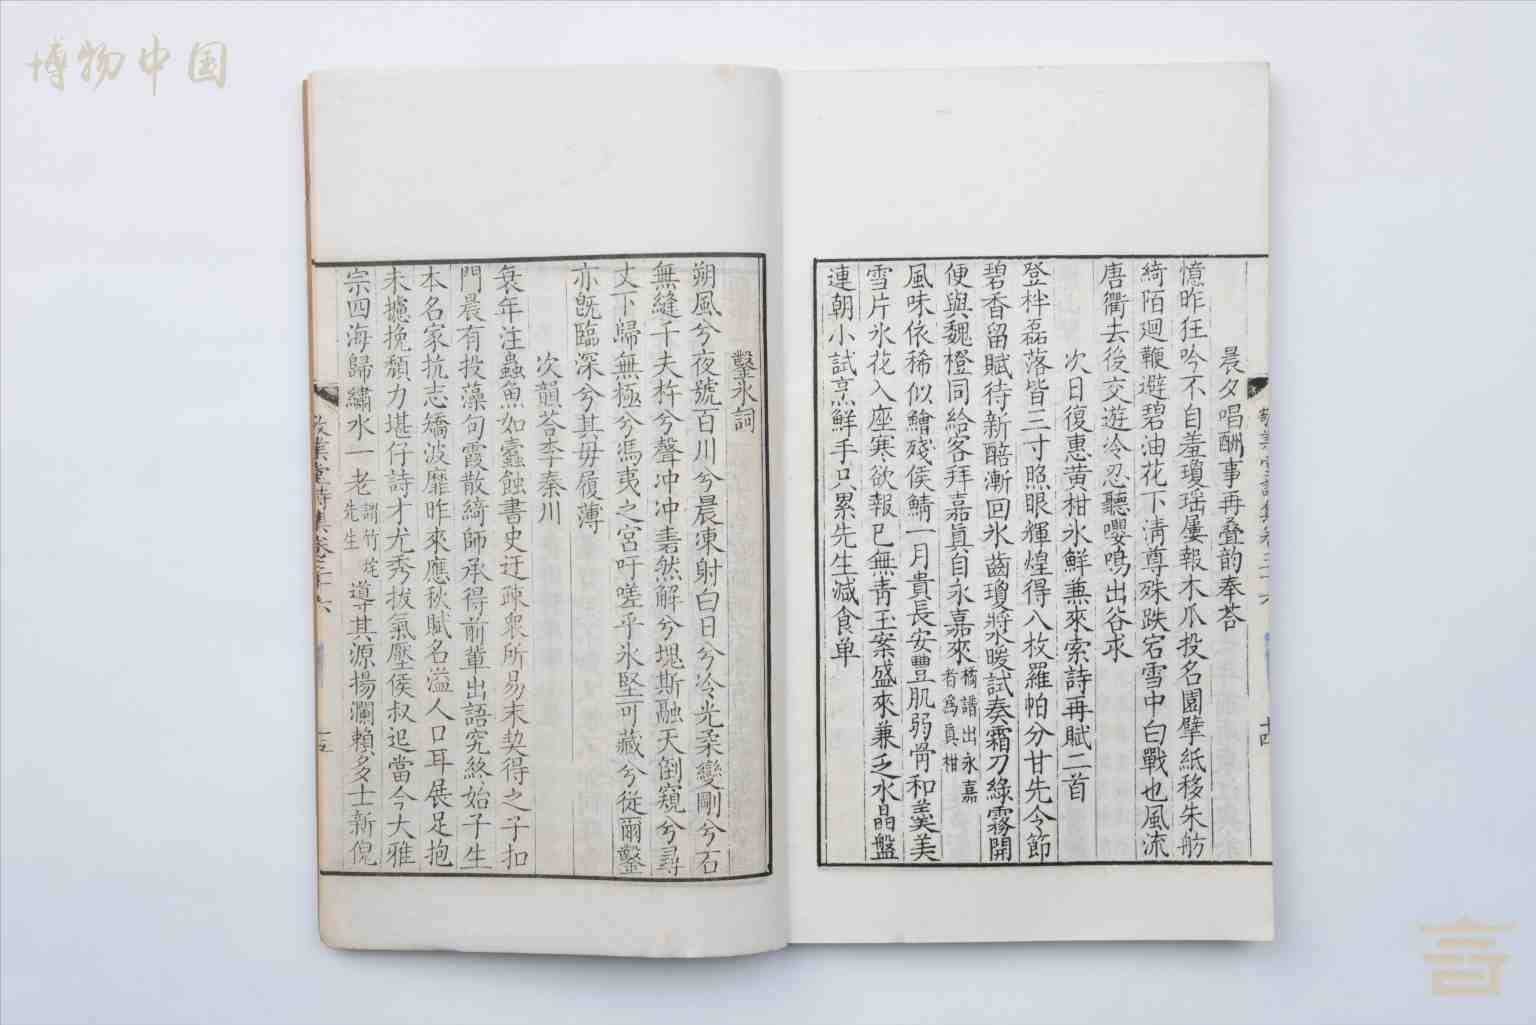 博物中国
晨夕唱酬事再叠韵奉荅
憶昨狂吟不自羞瓊瑶屢報木瓜投名園擘紙移朱舫
綺陌廻鞭避碧油花下清尊殊跌宕雪中白戰也風流
唐衢去後交遊冷忍聽嚶鳴出谷求
次日復惠黄柑氷鮮兼來索詩再賦二首
登柈磊落皆三寸照眼輝煌得八枚羅帕分甘先令節
碧香留賦待新醅漸回氷齒瓊漿暖試奏霜刀綠霧開
便與魏橙同給客拜嘉眞自永嘉來橘譜出永嘉者為真柑
風味依稀似鱠殘侯鯖一月貴長安豐肌弱骨和羹美
雪片氷花入座寒欲報已無青玉案盛來兼乏水晶盤
連朝小試烹鮮手只累先生減食单
十四
鑿氷詞
朔風兮夜號百川兮晨凍射白日兮冷光柔變剛兮石
無縫千夫杵兮聲冲冲砉然解兮塊斯融天倒窺兮尋
丈下歸無極兮馮夷之宮吁嗟乎氷堅可藏兮從爾鑿
亦旣臨深兮其毋履薄
次韻荅李秦川
衰年注蟲魚如蠹蝕書史迂疎衆所易末契得之子扣
門晨有投藻句霞散綺師承得前輩出語究終始子生
本名家抗志矯波靡昨來應秋賦名溢人口耳展足抱
未攄挽頽力堪仔詩才尤秀拔氣壓侯叔起當今大雅
宗四海歸繡水一老謂竹垞先生導其源揚瀾賴多士新俔
敬業堂詩集卷三十六
十五